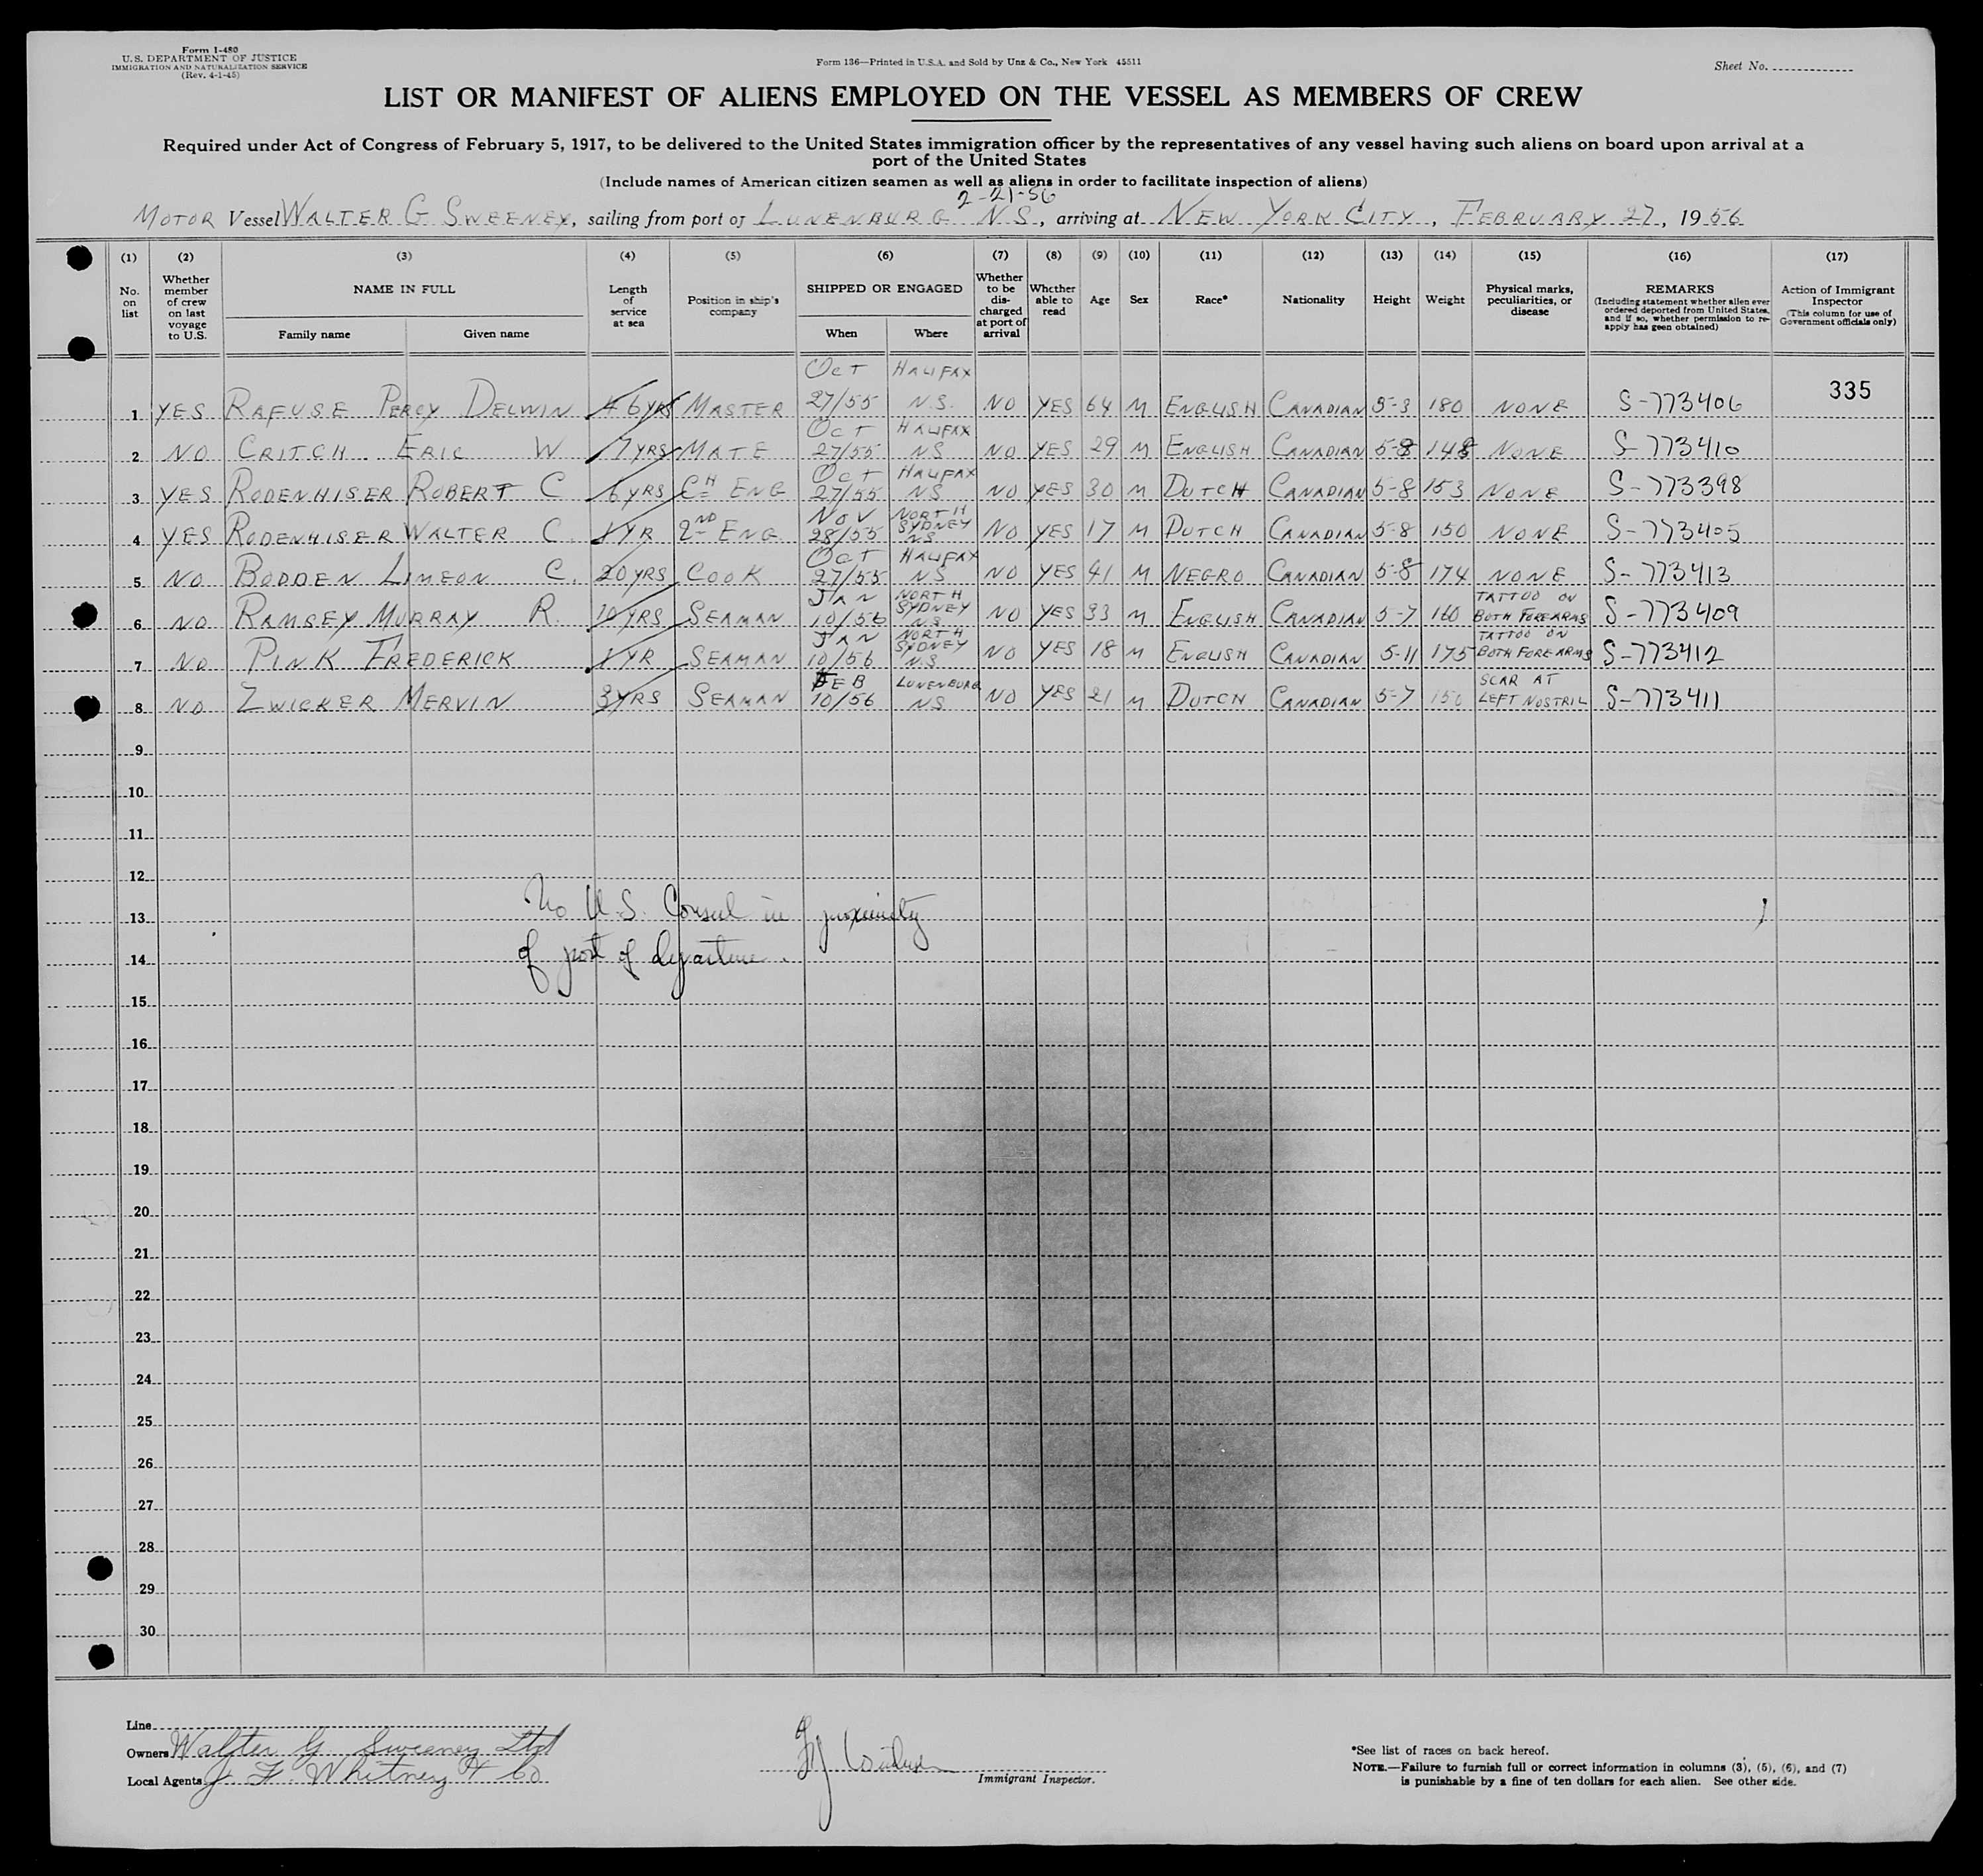 Form I-480
U.S. DEPARTMENT OF JUSTICE
IMMIGRATION AND NATURALIZATION SERVICE
(Rev. 4-1-45)
Form 136—Printed in U.S.A. and Sold by Unz & Co., New York 45511
Sheet No.
LIST OR MANIFEST OF ALIENS EMPLOYED ON THE VESSEL AS MEMBERS OF CREW
Required under Act of Congress of February 5, 1917, to be delivered to the United States immigration officer by the representatives of any vessel having such aliens on board upon arrival at a
port of the United States
(Include names of American citizen seamen as well as aliens in order to facilitate inspection of aliens)
2-21-56
MOTOR Vessel WALTER G SWEENEY, sailing from port of LUNENBURG N.S., arriving at NEW YORK CITY, FEBRUARY 27, 1956
(1) (2) (3) (4) (5) (6) (7) (8) (9) (10) (11) (12) (13) (14) (15) (16) (17)
No. on list
Whether member of crew on last voyage to U.S.
NAME IN FULL
Family name
Given name
Length of service at sea
Position in ship's company
SHIPPED OR ENGAGED
When
Where
Whether to be discharged at port of arrival
Whether able to read
Age
Sex
Race*
Nationality
Height
Weight
Physical marks, peculiarities, or disease
REMARKS
(Including statement whether alien ever ordered deported from United States, and if so, whether permission to reapply has geen obtained)
Action of Immigrant Inspector
(This column for use of Government officials only)
1 YES RAFUSE PERCY DELWIN 46 YRS MASTER OCT 27/55 HALIFAX N.S. NO YES 64 M ENGLISH CANADIAN 5-3 180 NONE S-773406 335
2 NO CRITCH ERIC W 7 YRS MATE OCT 27/55 HALIFAX NS NO YES 29 M ENGLISH CANADIAN 5-8 148 NONE S-773410
3 YES RODENHISER ROBERT C 6 YRS CH ENG OCT 27/55 HALIFAX NS NO YES 30 M DUTCH CANADIAN 5-8 153 NONE S-773398
4 YES RODENHISER WALTER C. 1 YR 2ND ENG NOV 28/55 NORTH SYDNEY NS NO YES 17 M DUTCH CANADIAN 5-8 150 NONE S-773405
5 NO BODDEN LIMEON C. 20 YRS COOK OCT 27/55 HALIFAX NS NO YES 41 M NEGRO CANADIAN 5-8 174 NONE S-773413
6 NO RAMSEY MURRAY R. 10 YRS SEAMAN JAN 10/56 NORTH SYDNEY N.S. NO YES 33 M ENGLISH CANADIAN 5-7 160 TATTOO ON BOTH FOREARMS S-773409
7 NO PINK FREDERICK 1 YR SEAMAN JAN 10/56 NORTH SYDNEY N.S NO YES 18 M ENGLISH CANADIAN 5-11 175 TATTOO ON BOTH FOREARMS S-773412
8 NO ZWICKER MERVIN 3 YRS SEAMAN FEB 10/56 LUNENBURG NS NO YES 21 M DUTCH CANADIAN 5-7 150 SCAR AT LEFT NOSTRIL S-773411
9
10
11
12
13 No U.S. Consul in proximity
14 of port of departure.
15
16
17
18
19
20
21
22
23
24
25
26
27
28
29
30
Line
Owners Walter G Sweeney Ltd
Local Agents J. F. Whitney & Co
Immigrant Inspector.
*See list of races on back hereof.
NOTE.—Failure to furnish full or correct information in columns (3), (5), (6), and (7)
is punishable by a fine of ten dollars for each alien. See other side.